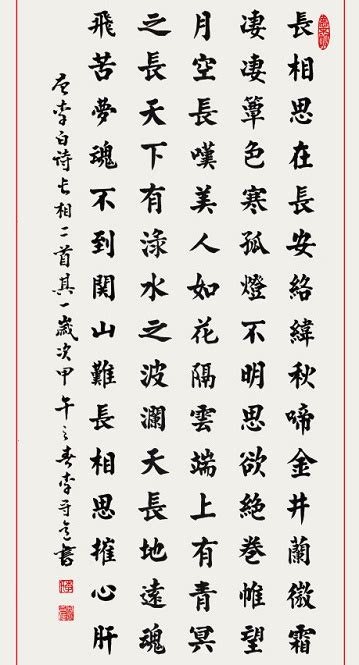 長相思在長安絡緯秋啼金井蘭微霜
凄凄簟色寒孤燈不明思欲絶卷帷望
月空長嘆美人如花隔雲端上有青冥
之長天下有淥水之波瀾天長地遠魂
飛苦夢魂不到関山難長相思摧心肝
李白诗长相二首其一歲次甲午之春李守書